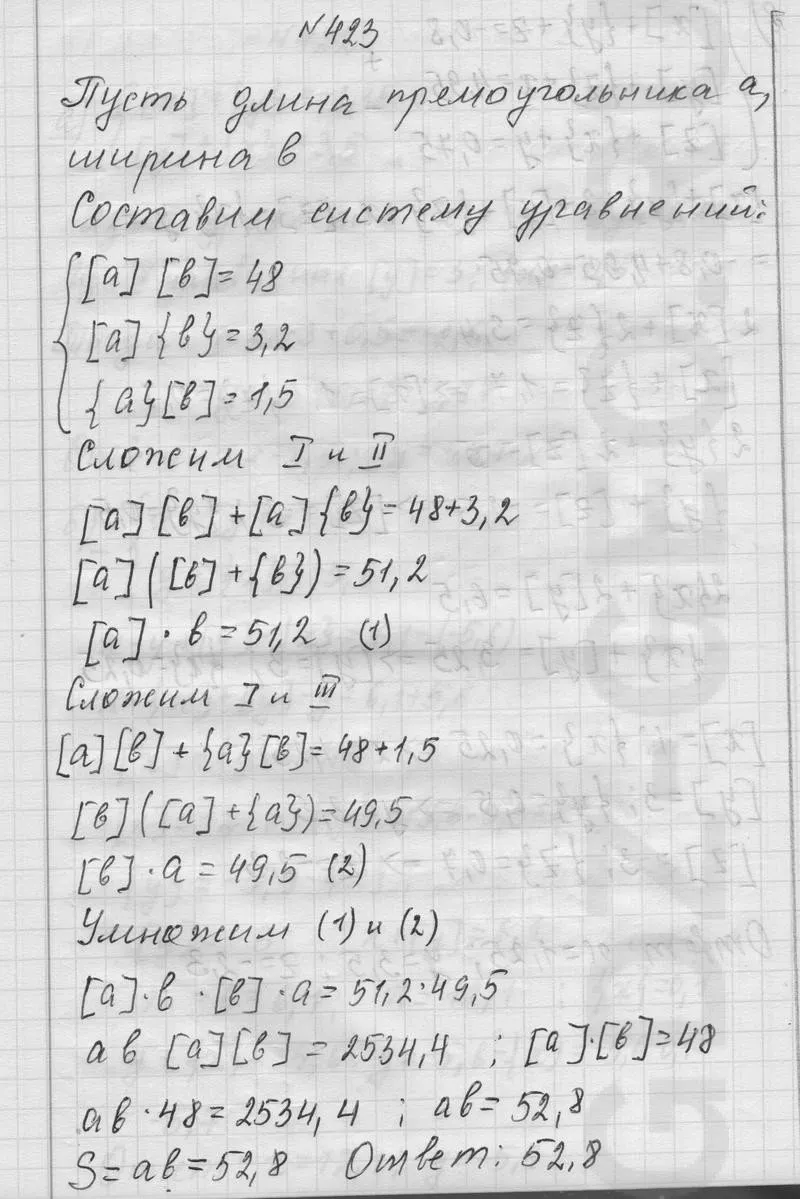 №423
Пусть длина прямоугольника a,
ширина в
Составим систему уравнений:
[a] [в] = 48
[a] {в} = 3,2
{a} [в] = 1,5
Сложим I и II
[a] [в] + [a] {в} = 48+3,2
[a] ([в] + {в}) = 51,2
[a] · в = 51,2 (1)
Сложим I и III
[a] [в] + {a} [в] = 48+1,5
[в] ([a] + {a}) = 49,5
[в] · a = 49,5 (2)
Умножим (1) и (2)
[a]·в ·[в] ·a = 51,2·49,5
aв [a][в] = 2534,4 ; [a]·[в]=48
aв·48 = 2534,4 ; aв = 52,8
S = aв = 52,8 Ответ: 52,8